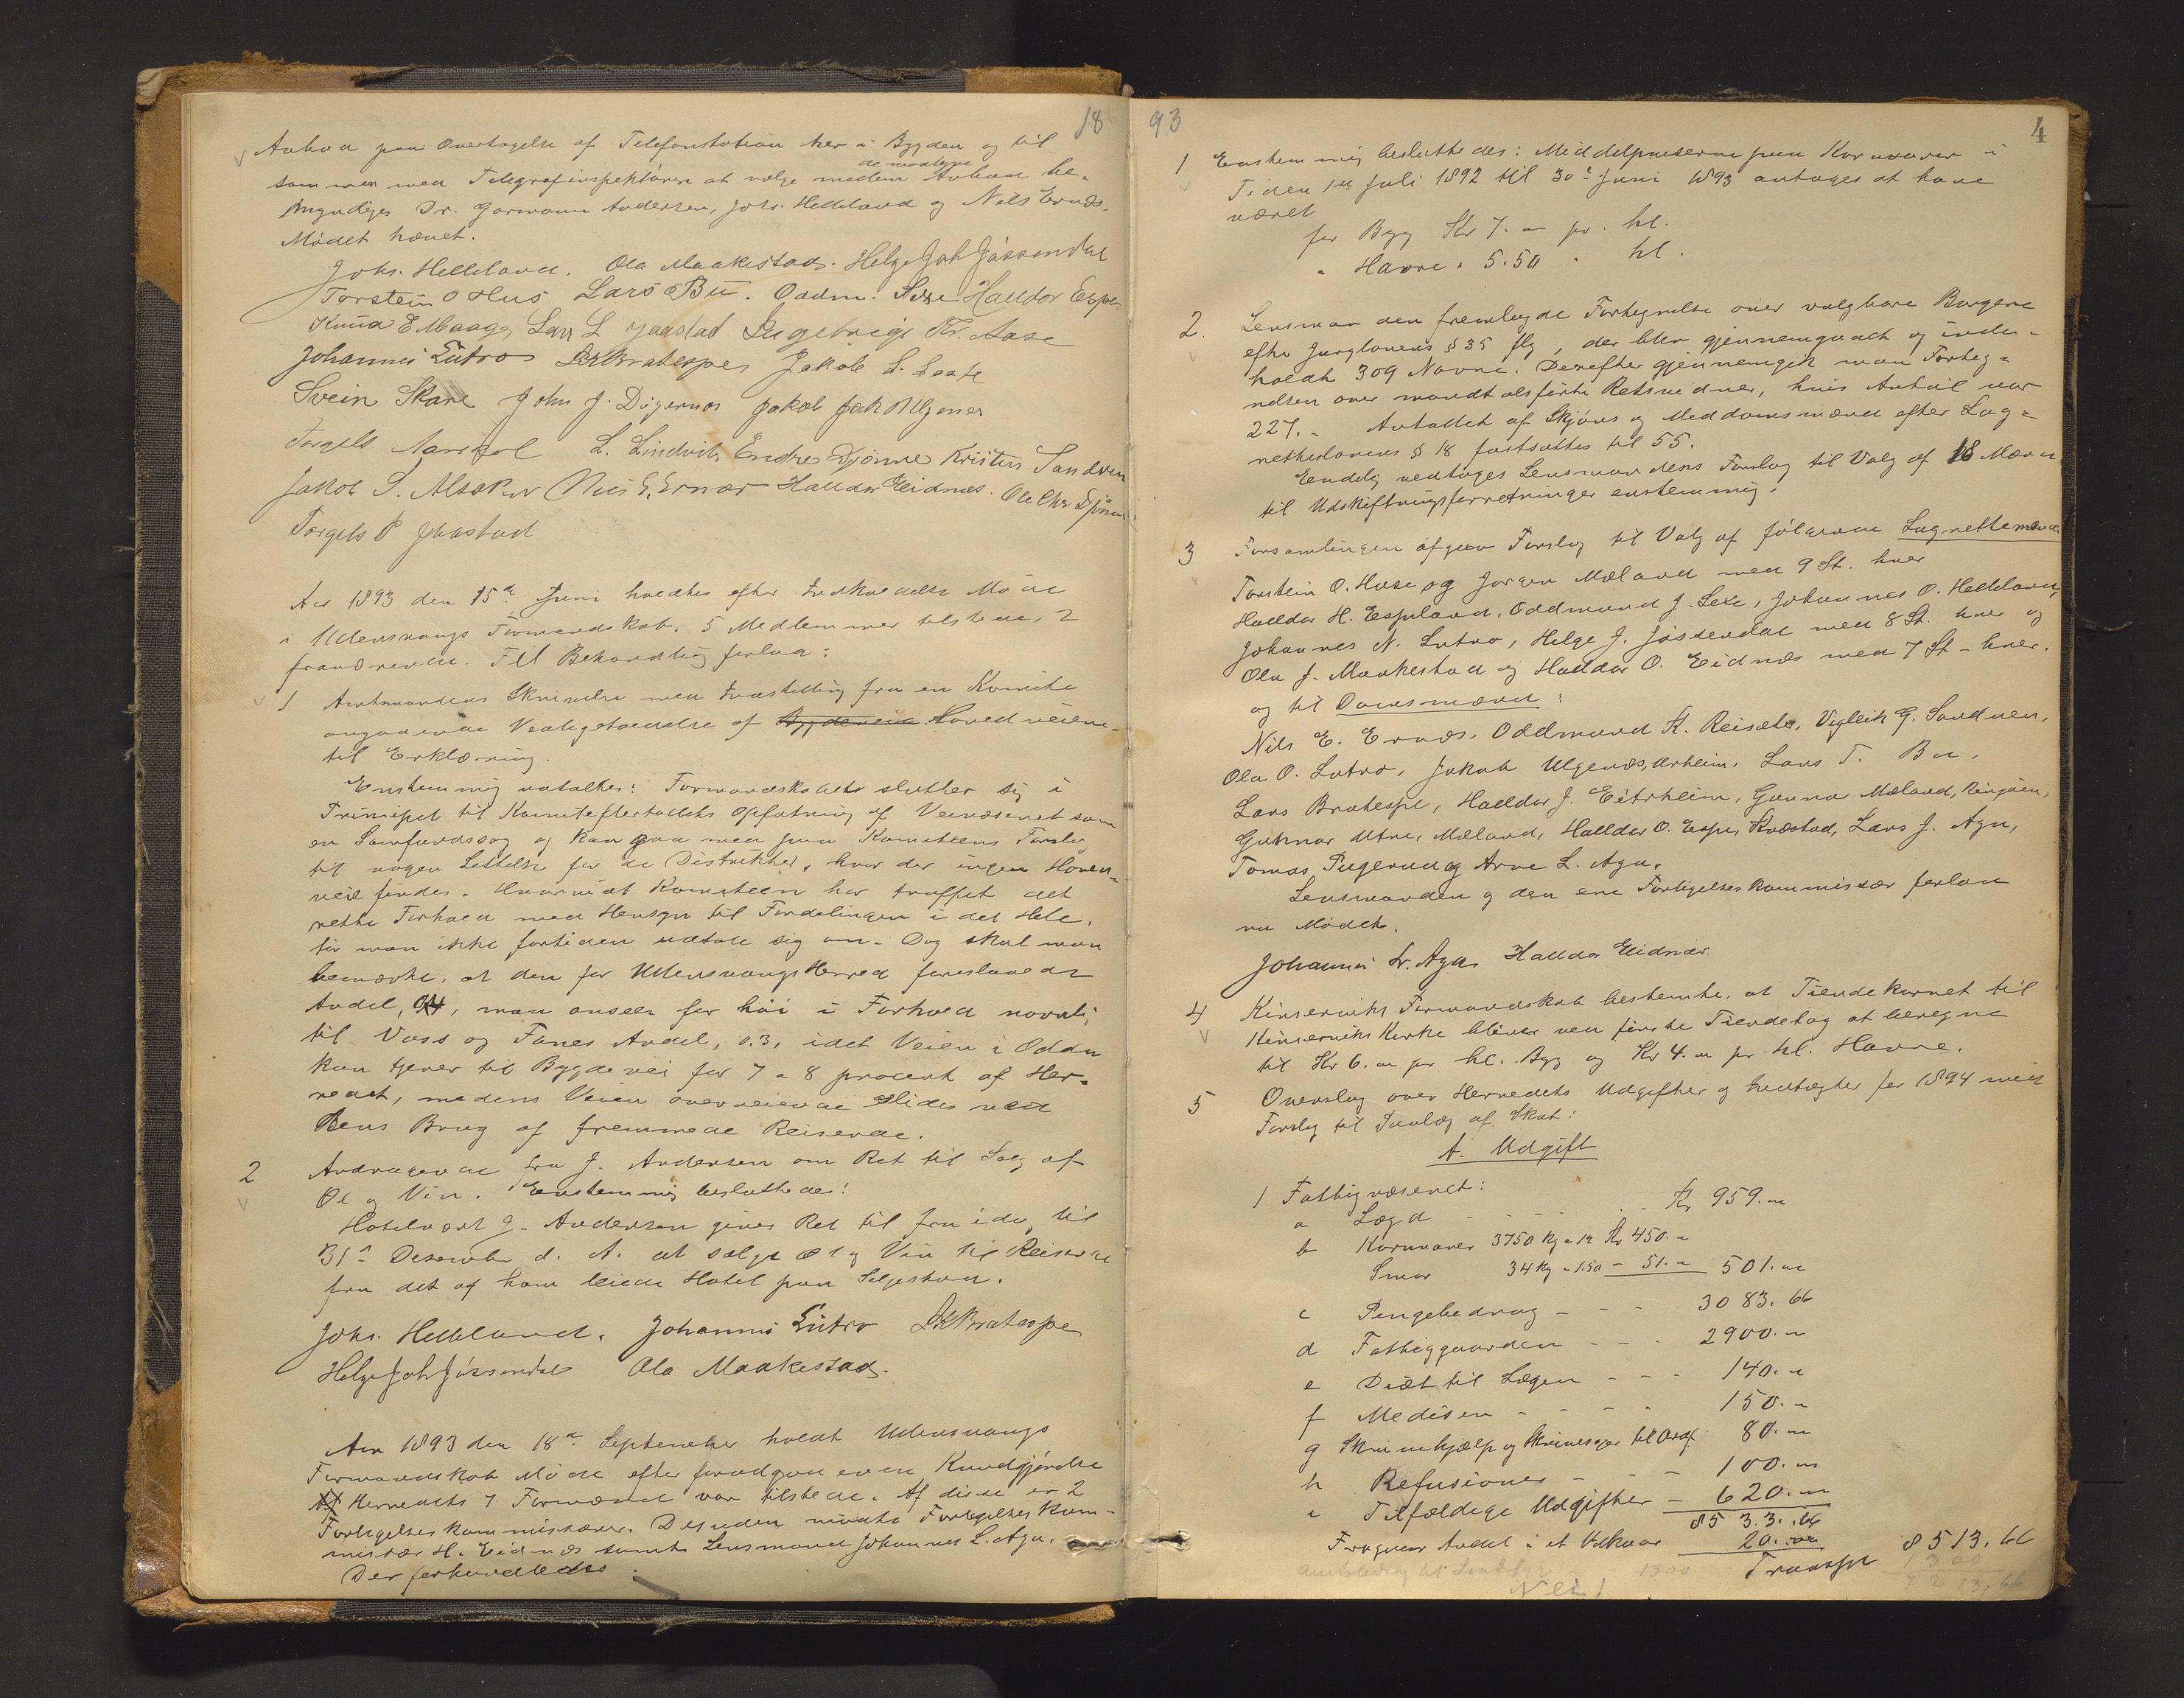 18
Anbud paa Overtagelse af Telefonstation her i Bygden og til
sammen med Telegrafinspektøren at vælge mellem de modtagne Anbud be-
myndiges Dr. Gormann Andersen, Johs. Helleland og Nils Ernæs.
Mødet hævet.
Johs. Helleland. Ola Maakestad. Helge Joh Jåssendal
Torstein O Hus Lars Bu. Oddm. Sexe Halldor Espe
Knud E Maage Lars L Jaastad Ingebrigt Kr. Aase
Johannes Lutro LKBratespe Jakob L.
Svein Skare John J. Digernes Jakob Jak Ulgjenes
Torgels L. Lindvik Endre Djønne Kristen Sandven
Jakob S. Alsaker Nils E. Ernæs Halldor Eidnæs. Ole Chr Djönne
Torgels P Jaastad
Aar 1893 den 15de Juni holdtes efter Indkaldelse Møde
i Ullensvangs Formandskab. 5 Medlemmer tilstede, 2
fraværende. Til Behandling forlaa:
1 Amtmandens Skrivelse med Indstilling fra en Komite
angaaende Vedligeholdelse af Bygdeveie Hovedveiene
til Erklæring.
Enstemmig vedtaltes: Formandskabet slutter sig i
Prinsipet til Komiteflertallets Opfatning af Veivæsenet som
en Samfundssag og kan gaa med paa Komiteens Forslag
til nogen Lettelse for de Distrikter, hvor der ingen Hoved-
veie findes. Hvorvidt Komiteen har truffet det
rette Forhold med Hensyn til Fordelingen i det Hele,
tør man ikke fortiden udtale sig om. Dog skal man
bemærke, at den for Ullensvangs Herred foreslaaede
Andel, 0.4, man anseer for høi i Forhold navnlig
til Voss og Fanes Andel, 0.3, idet Veien i Odda
kun tjener til Bygdevei for 7 a 8 procent af Her-
redet, medens Veien overveiende slides ved
Dens Brug af fremmede Reisende.
2 Andragende fra J. Andersen om Ret til Salg af
Øl og Vin. Enstemmig besluttedes:
Hotelvært J. Andersen gives Ret til fra idag til
31te December d. A. at sælge Øl og Vin til Reisende
fra det af ham leiede Hotel paa Seljestad.
Johs. Helleland. Johannes Lutro LKBratespe
Helge Joh Jåssendal Ola Maakestad.
Aar 1893 den 18de September holdt Ullensvangs
Formandskab Møde efter forudgaaende Kundgjørelse
Af Herredets 7 Formænd var tilstede. Af disse er 2
Forligelseskommissærer. Desuden mødte Forligelseskom-
missær H. Eidnæs samt Lensmand Johannes L. Aga.
Der forhandledes
93
4
1 Enstemmig besluttedes: Middelpriserne paa Kornvarer i
Tiden 1ste Juli 1892 til 30te Juni 1893 antages at have
været
for Byg Kr 7.00 pr. hl.
" Havre " 5.50 " hl.
2. Lensmanden fremlagde Fortegnelse over valgbare Borgere
efter Jurylovens § 35 flg, der blev gjennemgaaet og inde-
holdt 309 Navne. Derefter gjennemgik man Forteg-
nelsen over mandtalsførte Retsvidner, hvis Antal var
227. - Antallet af Skjøns og Meddomsmænd efter Lag-
rettelovens § 18 fastsattes til 55.
Endelig vedtoges Lensmandens Forslag til Valg af 18 Mænd
til Udskiftningsforretninger enstemmig.
3 Forsamlingen afgav Forslag til Valg af følgende Lagrettemænd
Torstein O. Huse og Jørgen Mæland med 9 St. hver
Halldor H. Espeland, Oddmund J. Sexe, Johannes O. Helleland,
Johannes N. Lutro, Helge J. Jøsdendal med 8 St. hver og
Ola J. Maakestad og Halldor O. Eidnæs med 7 St - hver.
og til Domsmænd:
Nils E. Ernæs, Oddmund K. Reisæte, Vigleik G. Sandven,
Ola O. Lutro, Jakob Ulgenæs, Urheim, Lars T. Bu,
Lars Bratespe, Halldor J. Eitrheim, Gunnar Mæland, Ringøen,
Gunnar Utne, Mæland, Halldor O. Espe, Kvæstad, Lars J. Aga,
Tomas Pugerud og Arne L. Aga.
Lensmanden og den ene Forligelseskommissær forlod
nu Mødet.
Johannes L. Aga Halldor Eidnæs.
4 Kinserviks Formandskab bestemte, at Tiendekornet til
Kinserviks Kirke bliver ved første Tiendetag at beregne
til Kr 6.00 pr hl. Byg og Kr 4.00 pr. hl. Havre.
5 Overslag over Herredets Udgifter og Indtægter for 1894 med
Forslag til Paalæg af Skat:
A. Udgift
1 Fattigvæsenet:
a Lægd - - - - - Kr 959.00
b Kornvarer 3750 Kg a 12 Kr 450.00
Smør 34 Kg a 1.50 - 51.00 501.00
c Pengebedrag - - - 3083.66
d Fattiggaarden - - - 2900.00
e Diæt til Lægen - - - 140.00
f Medisin - - - - 150.00
g Skrivehjælp og Skrivesager til Ordf. 80.00
h Refusioner - - - 100.00
i Tilfældige Udgifter - 620.00
8533.66
Fragaar Andel i et 20.00 8513.66
Transp
Amtsbidrag til 1300 1300
Nei! 7213,66